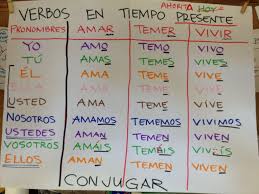 VERBOS EN TIEMPO PRESENTE
AHORITA HOY
PRONOMBRES AMAR TEMER VIVIR
YO AMO TEMO VIVO
TÚ AMAS TEMES VIVES
ÉL AMA TEME VIVE
ELLA AMA TEME VIVE
USTED AMA TEME VIVE
NOSOTROS AMAMOS TEMEMOS VIVIMOS
USTEDES AMAN TEMEN VIVEN
VOSOTROS AMÁIS TEMÉIS VIVÍS
ELLOS AMAN TEMEN VIVEN
CONJUGAR